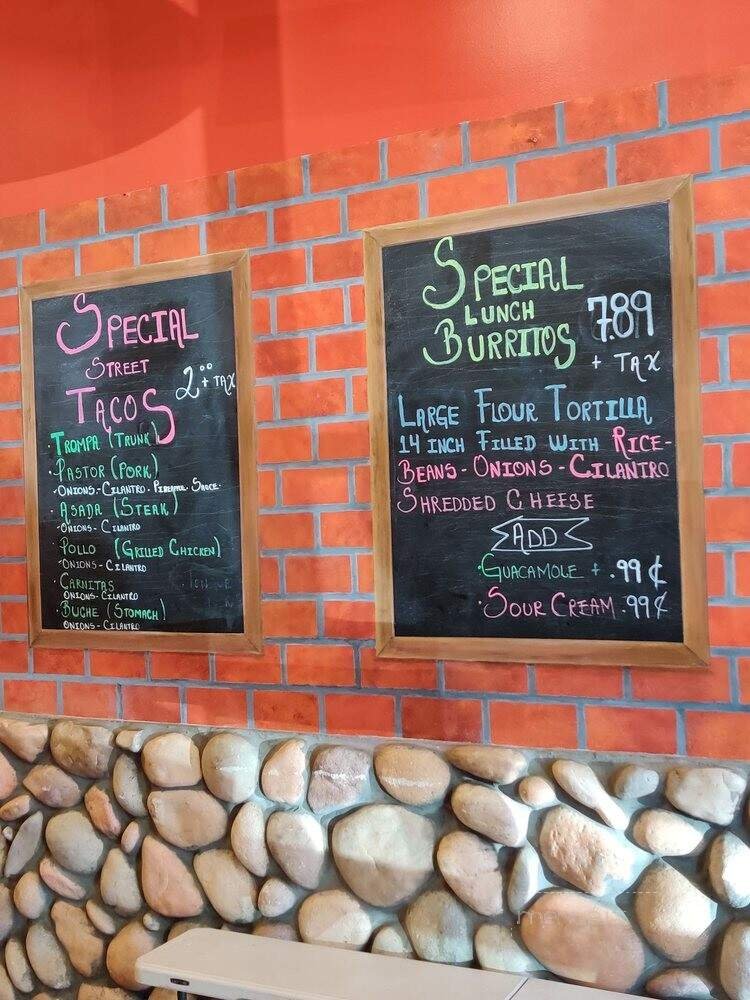 SPECIAL
STREET
TACOS
2.00 + TAX
· TROMPA (TRUNK)
· PASTOR (PORK)
· ONIONS - CILANTRO - PINEAPPLE - SAUCE -
· ASADA (STEAK)
· ONIONS - CILANTRO
· POLLO (GRILLED CHICKEN)
· ONIONS - CILANTRO
· CARNITAS
ONIONS - CILANTRO
· BUCHE (STOMACH)
ONIONS - CILANTRO
SPECIAL
LUNCH
BURRITOS
7.89
+ TAX
LARGE FLOUR TORTILLA
14 INCH FILLED WITH RICE -
BEANS - ONIONS - CILANTRO
SHREDDED CHEESE
ADD
· GUACAMOLE + .99 ¢
· SOUR CREAM .99 ¢